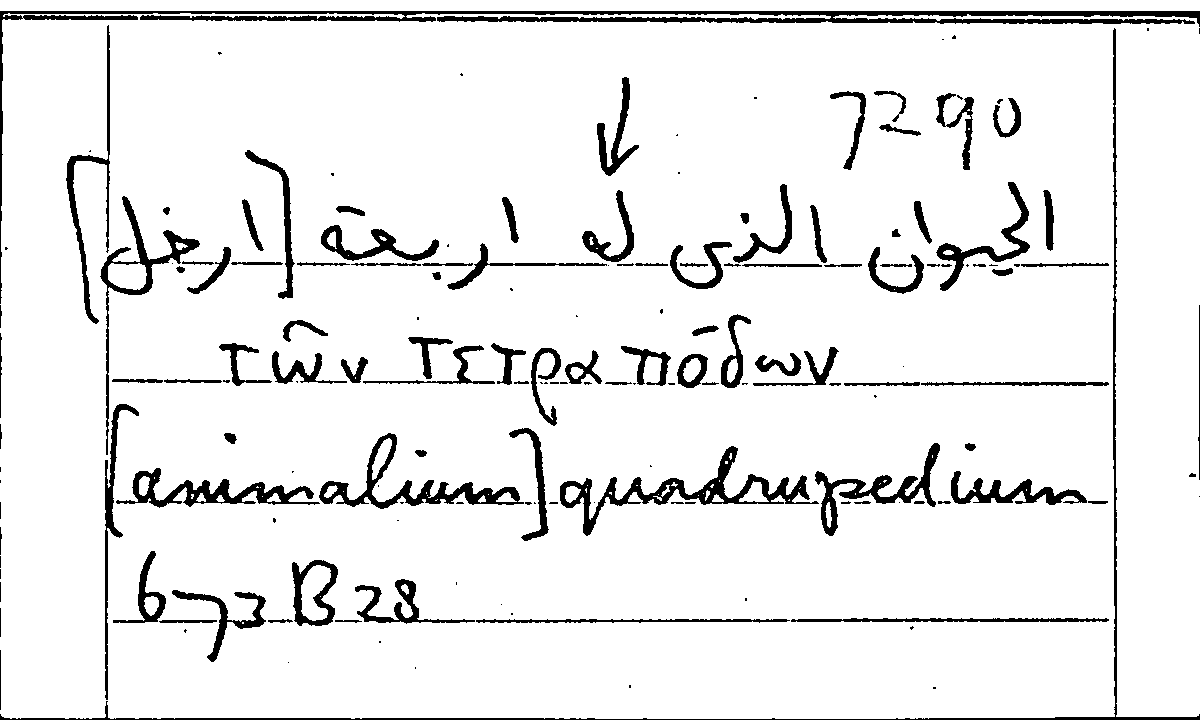 7290
↓
الحيوان الذى له اربعة [ارجل]
τῶν τετραπόδων
[animalium] quadrupedium
673 B 28